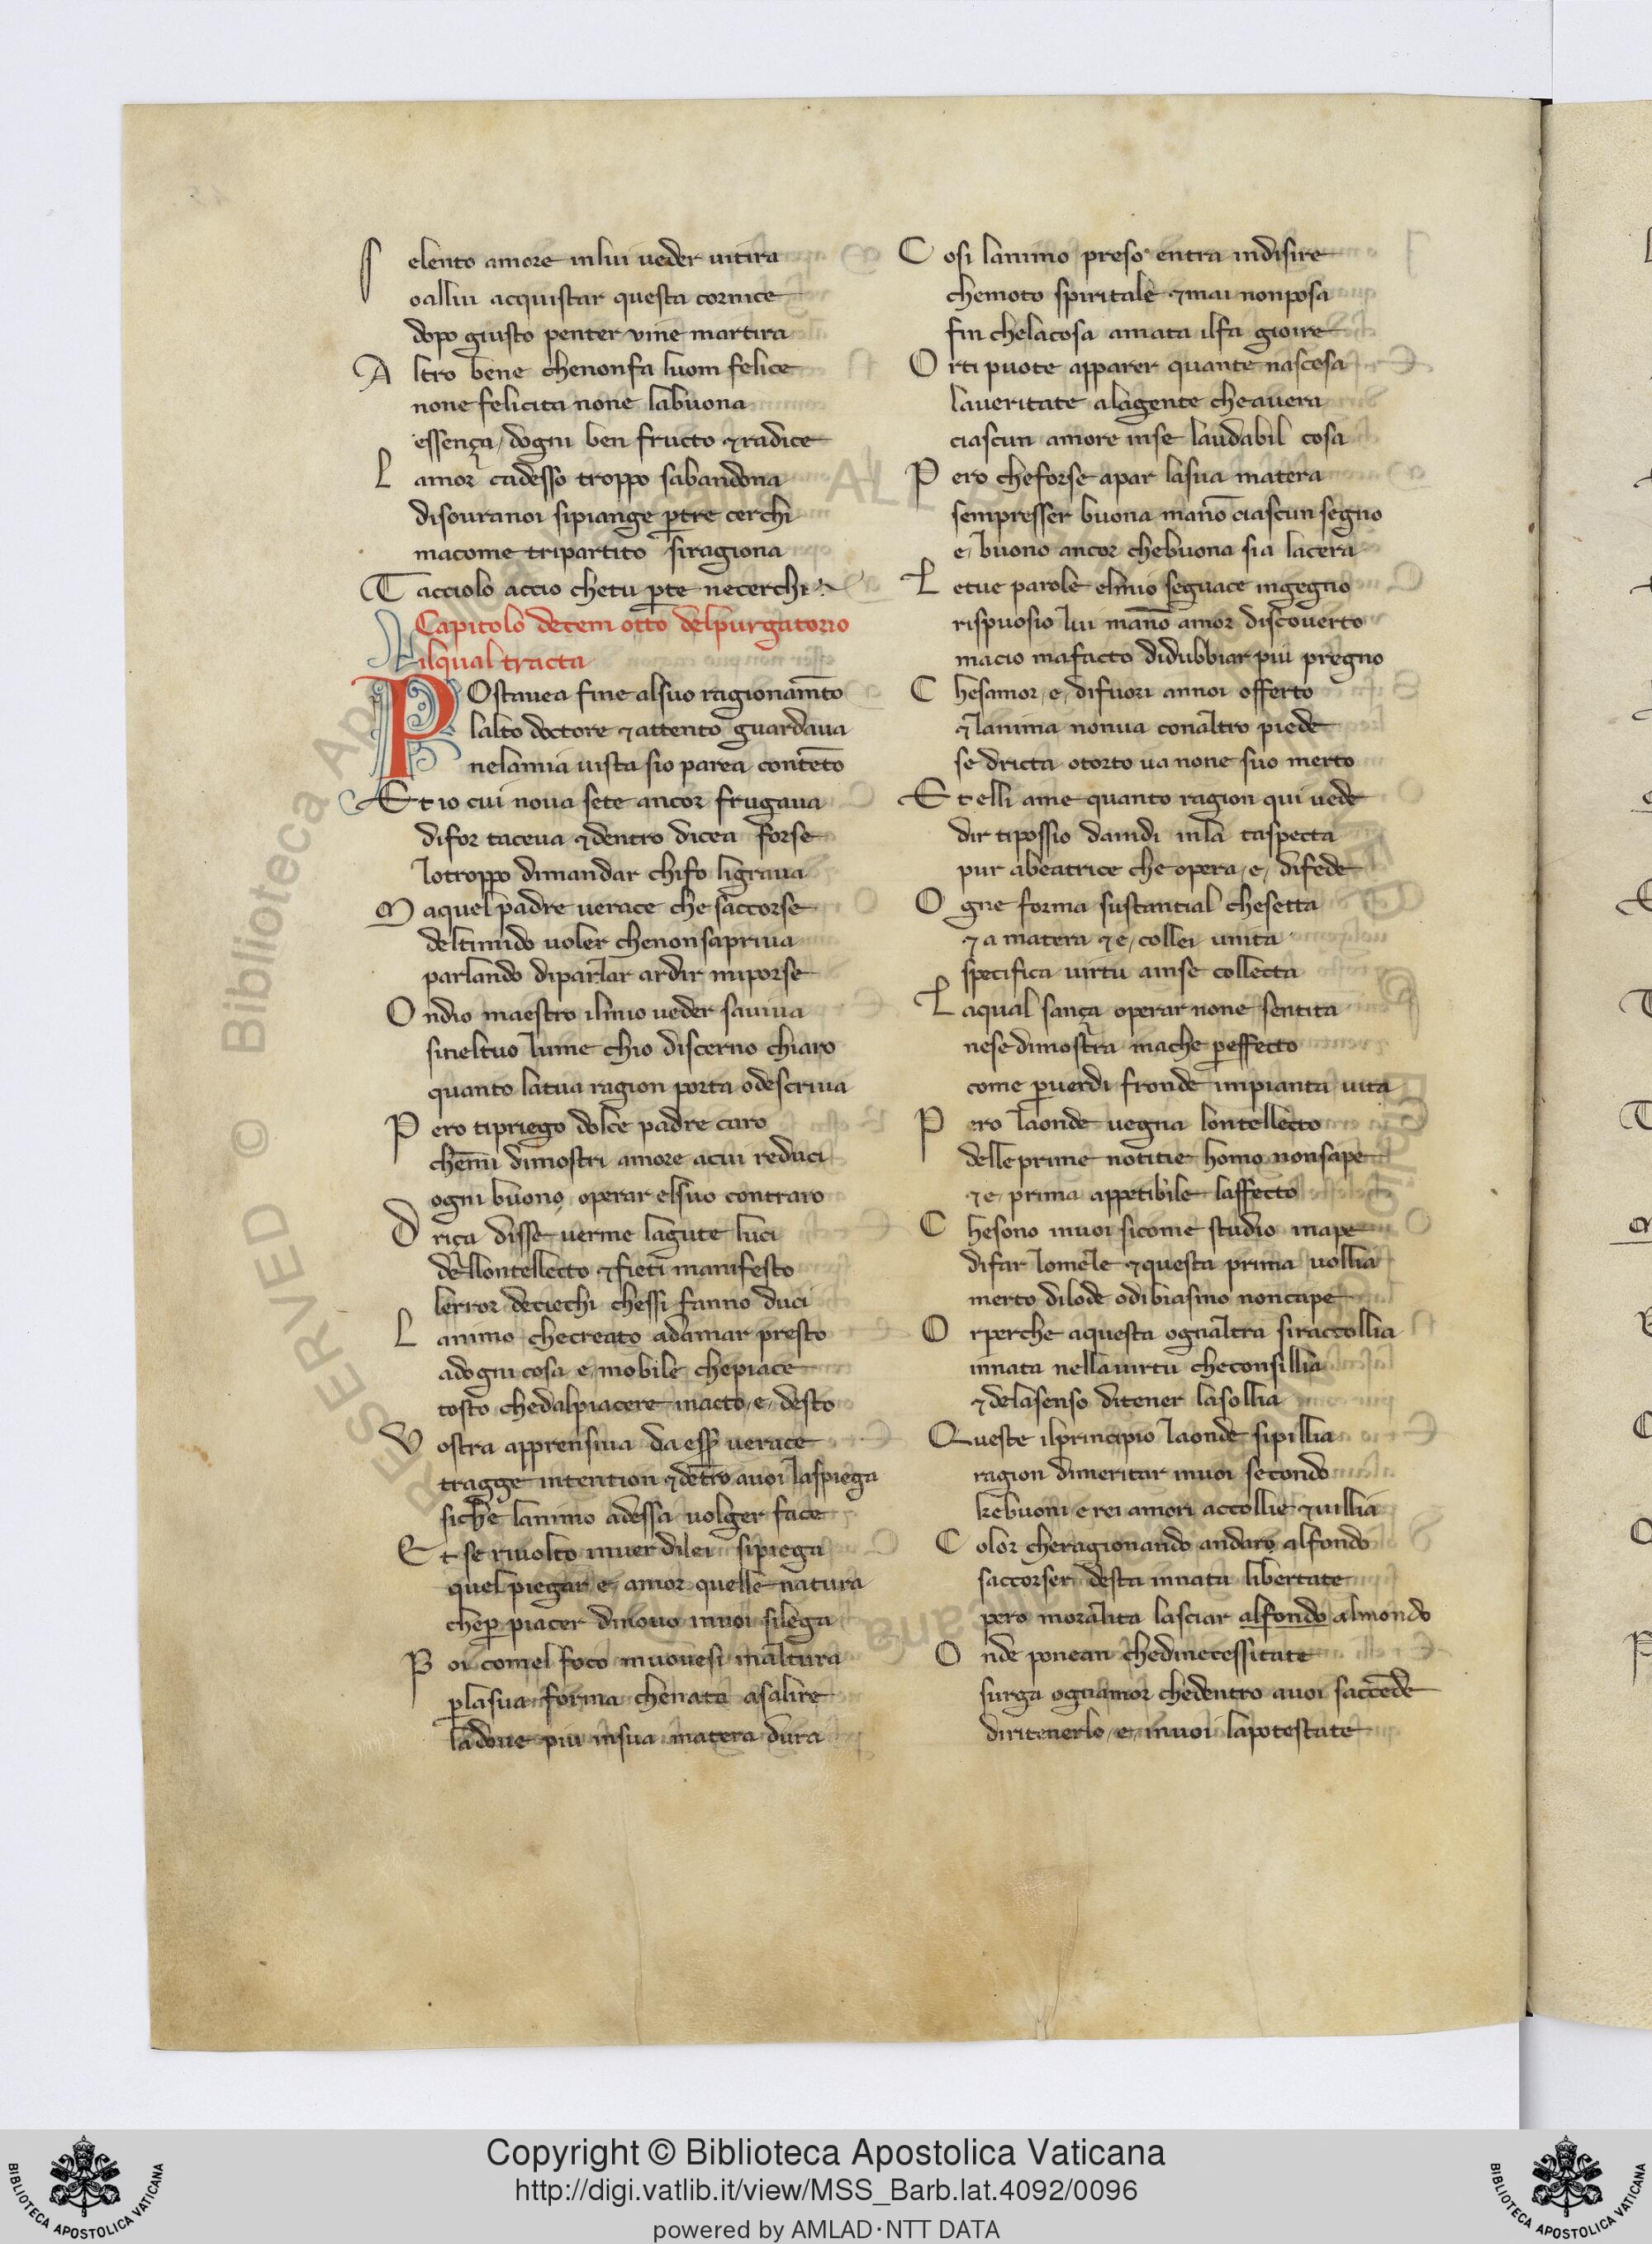 S elento amore inlui ueder uitira
oallui acquistar questa cornice
dopo giusto penter vine martira
A ltro bene chenonfa luom felice
none felicita none labuona
essença dogni ben fructo ⁊ radice
L amor cadesso troppo sabandona
disouranoi sipiange ꝑtre cerchi
macome tripartito siragiona
T acciolo accio chetu ꝑte necerchi
Capitolo decem otto delpurgatorio
ilqual tracta
P Ostauea fine alsuo ragionam̄to
lalto doctore ⁊ attento guardaua
nelamia uista sio parea contēto
E t io cui noua sete ancor frugaua
difor taceua ⁊ dentro dicea forse
lotroppo dimandar chifo ligraua
M aquel padre uerace che saccorse
deltimido uoler chenonsapriua
parlando diparlar ardir mporse
O ndio maestro ilmio ueder sauiua
sineltuo lume chio discerno chiaro
quanto latua ragion porta odescriua
P ero tipriego dolce padre caro
chem̄i dimostri amore acui reduci
ogni buono operar elsuo contraro
D riça disse uerme lagute luci
dellōntellecto ⁊ fieti manifesto
lerror deciechi chessi fanno duci
L animo checreato adamar presto
adogni cosa e mobile chepiace
tosto chedalpiacere inacto e desto
V ostra apprensiua da ess̄ uerace
tragge intention ⁊ dētro auoi laspiega
siche lanimo adessa uolger face
E t se riuolto inuer dilei sipiega
quel piegar e amor quelle natura
cheꝑ piacer dinouo inuoi silega
P oi comel foco muouesi inaltura
ꝑlasua forma chenata asalire
ladoue piu insua matera dura
C osi lanimo preso entra indisire
chemoto spiritale ⁊ mai nonposa
fin chelacosa amata ilfa gioire
O rti puote apparer quante nascosa
laueritate alagente cheauera
ciascun amore inse laudabil cosa
P ero cheforse apar lasua matera
sempresser buona man̄o ciascun segno
e buono ancor chebuona sia lacera
L etue parole elmio seguace ingegno
rispuosio lui man̄o amor discouerto
macio mafacto didubbiar piu pregno
C hesamor e difuori annoi offerto
⁊ lanima nonua conaltro piede
se dricta otorto ua none suo merto
E t elli ame quanto ragion qui uede
dir tipossio daindi inla taspecta
pur abeatrice che opera e difede
O gne forma sustantial chesetta
⁊ a matera ⁊ e collei unita
specifica uirtu ainse collecta
L aqual sança operar none sentita
nese dimostra mache ꝑeffecto
come ꝑuerdi fronde inpianta uita
P ero laonde uegna lontellecto
delleprime notitie homo nonsape
⁊ e prima appetibile laffecto
C hesono inuoi sicome studio inape
difar lomele ⁊ questa prima uollia
merto dilode odibiasmo noncape
O rperche aquesta ognaltra siraccollia
innata nellauirtu checonsillia
⁊ delasenso ditener lasollia
Queste ilprincipio laonde sipillia
ragion dimeritar inuoi secondo
kebuoni e rei amori accollie ⁊ uillia
C olor cheragionando andaro alfondo
saccorser desta innata libertate
pero moralita lasciar alfondo almondo
O nde ponean chedinecessitate
surga ognamor chedentro auoi saccēde
diritenerlo e inuoi lapotestate
Copyright © Biblioteca Apostolica Vaticana
http://digi.vatlib.it/view/MSS_Barb.lat.4092/0096
powered by AMLAD·NTT DATA
BIBLIOTECA APOSTOLICA VATICANA
BIBLIOTECA APOSTOLICA VATICANA